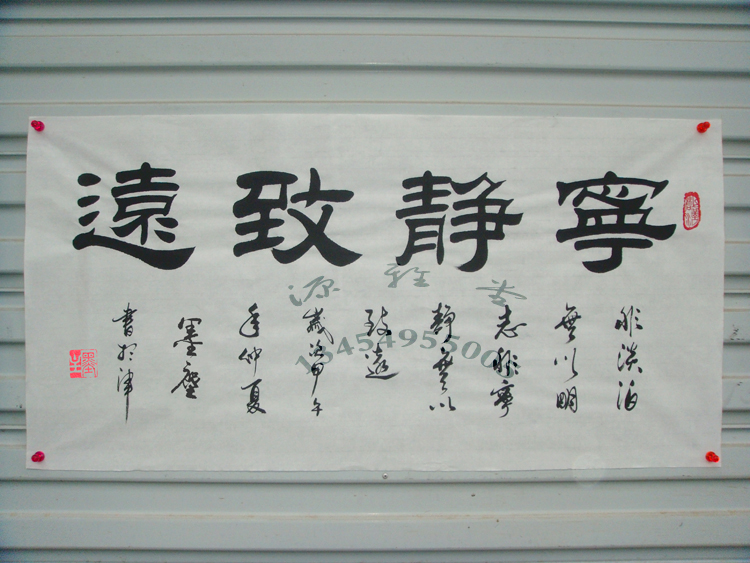 寧静致遠
非淡泊
無以明
志非寧
静無以
致遠
歲次甲午
年仲夏
墨
書於津
源雅